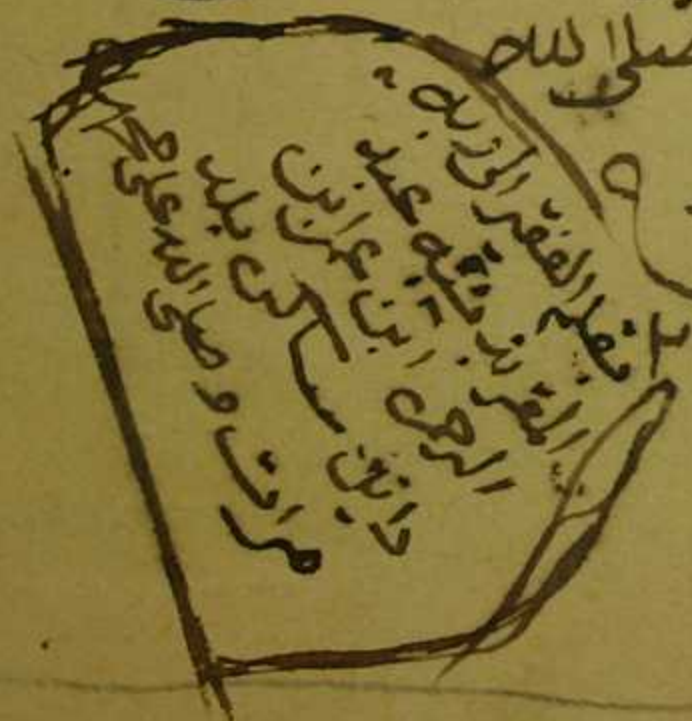 صلى الله
نقله الفقير الى ربه
المقر بذنبه عبد
الرحمن ابن ابن
ساكن بلد
مرات وصلى الله على محمد